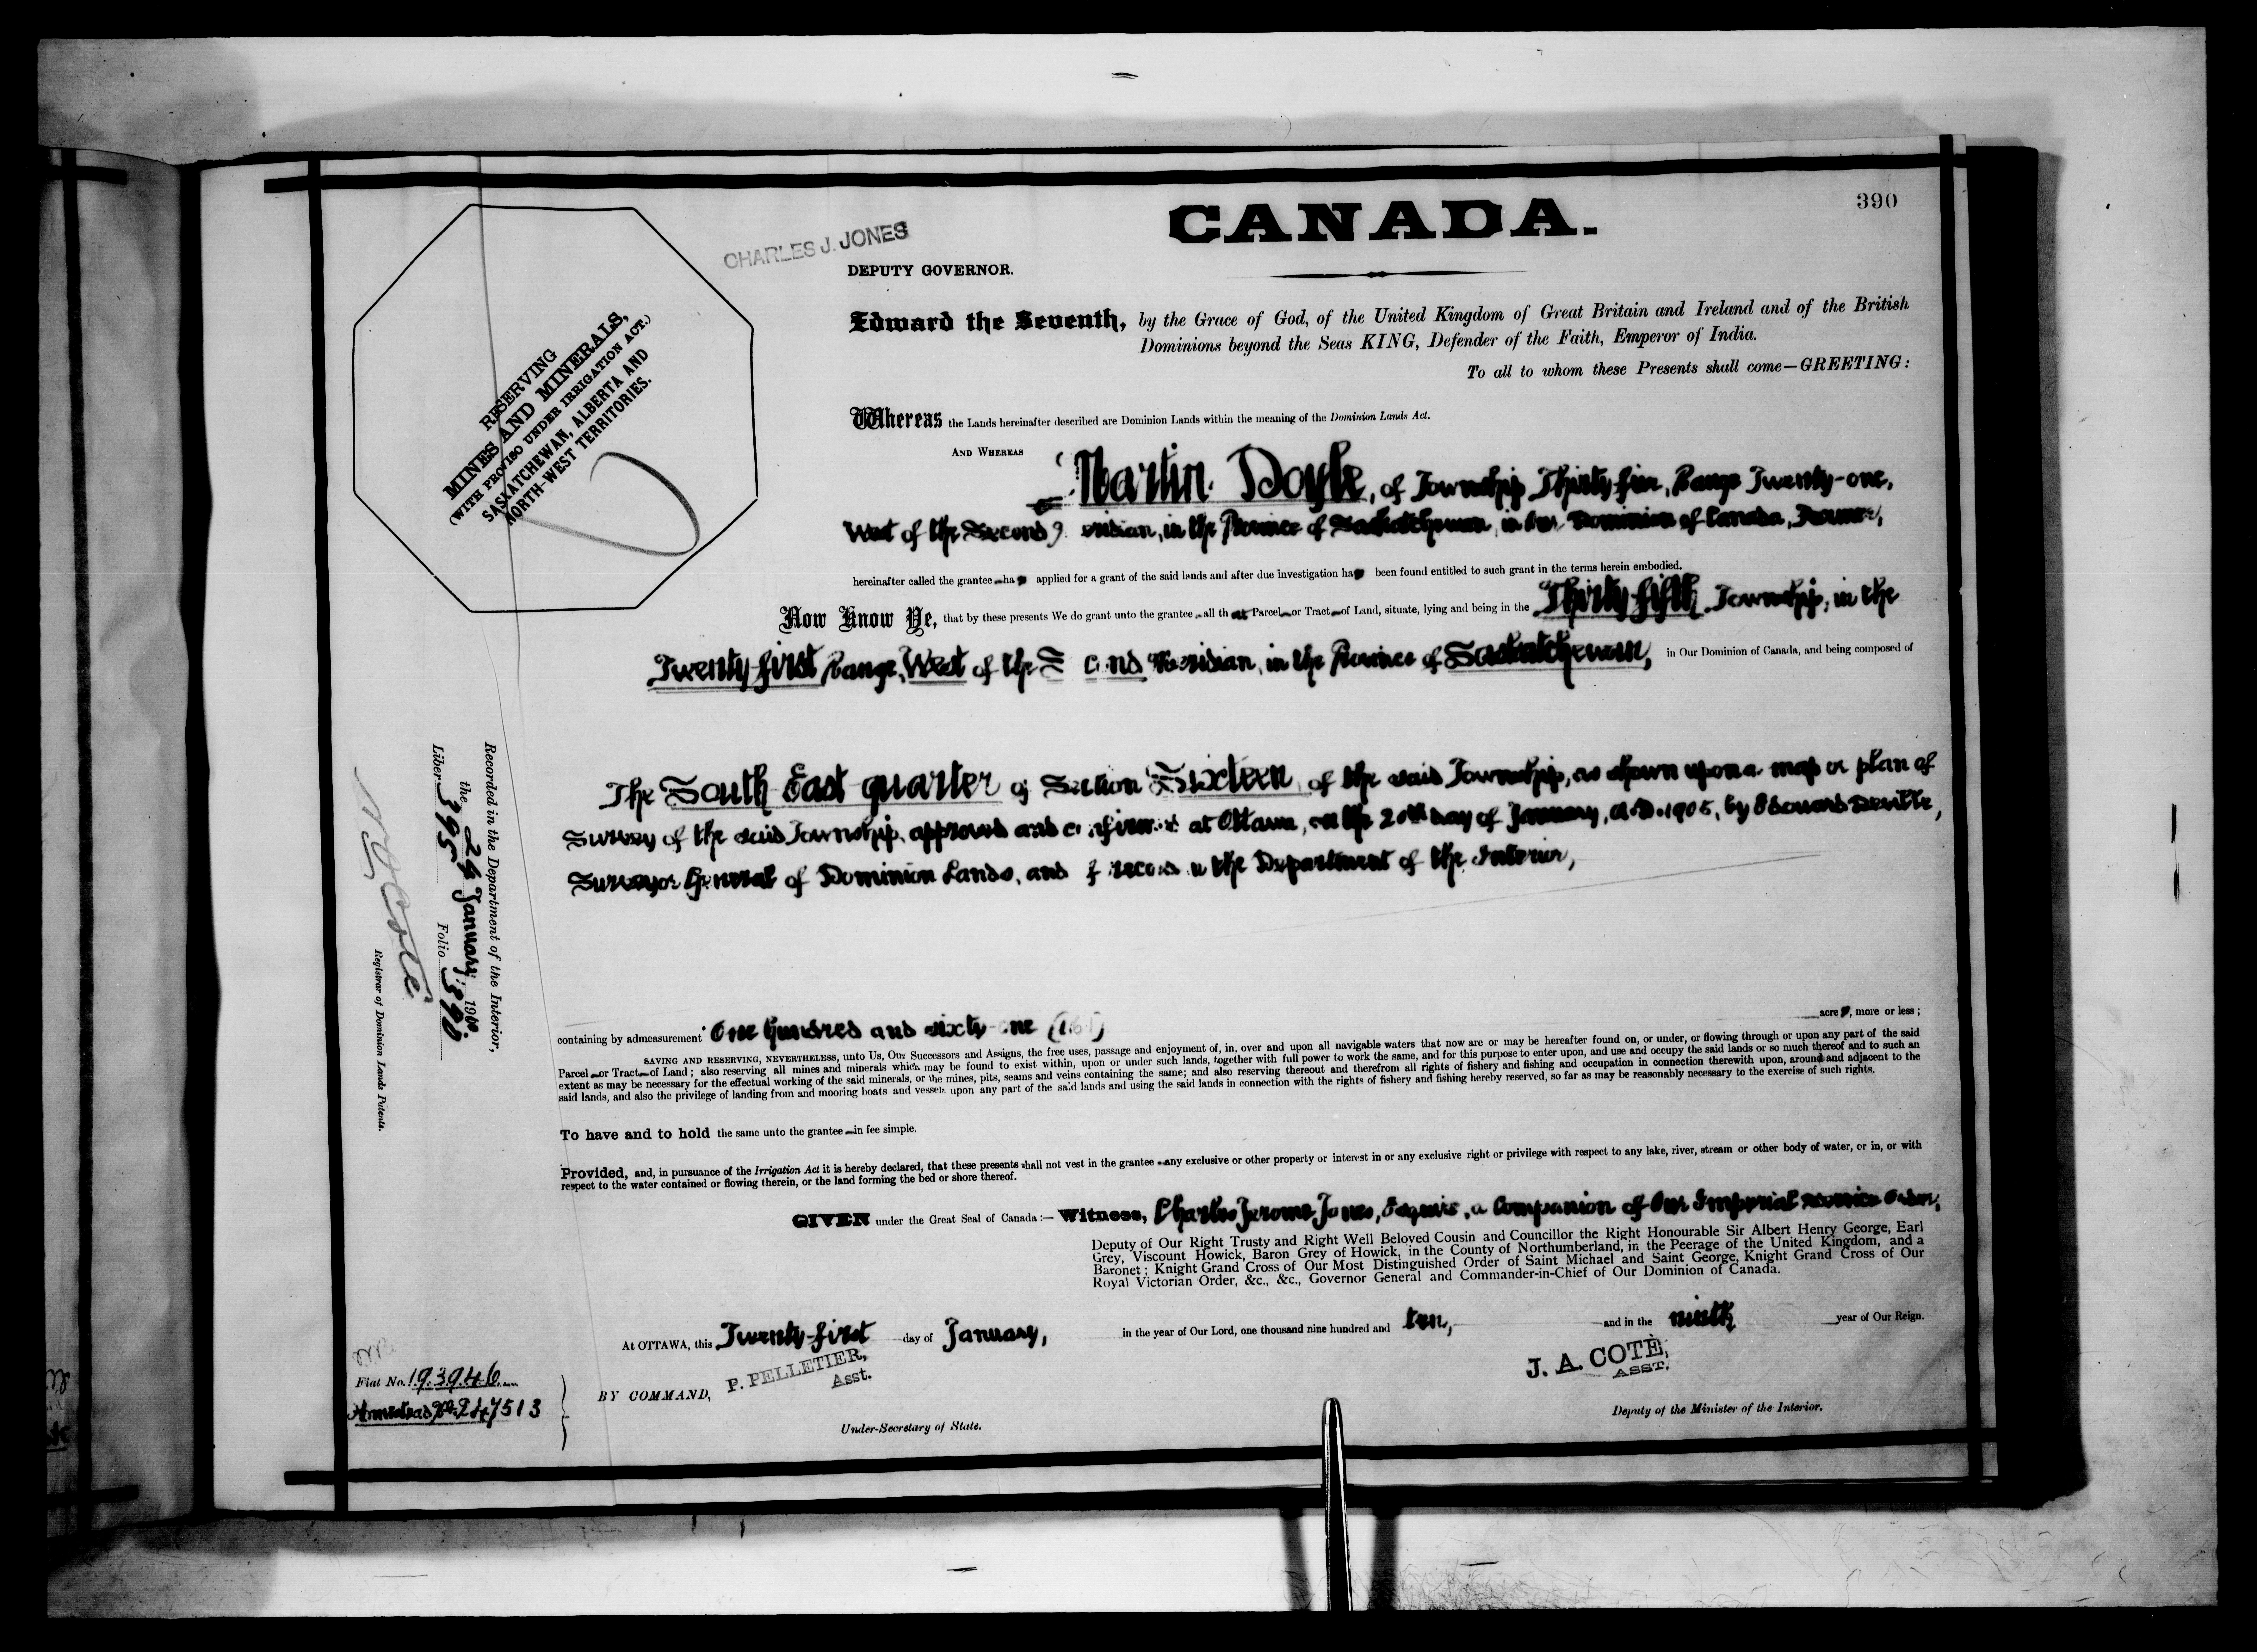 390
CANADA.
CHARLES J. JONES
DEPUTY GOVERNOR.
RESERVING
MINES AND MINERALS,
(WITH PROVISO UNDER IRRIGATION ACT.)
SASKATCHEWAN, ALBERTA AND
NORTH-WEST TERRITORIES.
Edward the Seventh, by the Grace of God, of the United Kingdom of Great Britain and Ireland and of the British
Dominions beyond the Seas KING, Defender of the Faith, Emperor of India.
To all to whom these Presents shall come—GREETING:
Whereas the Lands hereinafter described are Dominion Lands within the meaning of the Dominion Lands Act.
AND WHEREAS
Martin Doyle, of Township Thirty-five, Range Twenty-one,
West of the Second Meridian, in the Province of Saskatchewan, in Our Dominion of Canada, Farmer,
hereinafter called the grantee has applied for a grant of the said lands and after due investigation has been found entitled to such grant in the terms herein embodied.
Now Know Ye, that by these presents We do grant unto the grantee all that Parcel or Tract of Land, situate, lying and being in the Thirty-fifth Township, in the
Twenty-first Range, West of the Second Meridian, in the Province of Saskatchewan, in Our Dominion of Canada, and being composed of
The South East quarter of Section Sixteen, of the said Township, as shown upon a map or plan of
Survey of the said Township, approved and confirmed at Ottawa, on the 20th day of January, A.D. 1905, by Edouard Deville,
Surveyor General of Dominion Lands, and of record in the Department of the Interior,
containing by admeasurement One hundred and sixty-one (161) acres, more or less;
SAVING AND RESERVING, NEVERTHELESS, unto Us, Our Successors and Assigns, the free uses, passage and enjoyment of, in, over and upon all navigable waters that now are or may be hereafter found on, or under, or flowing through or upon any part of the said
Parcel or Tract of Land; also reserving all mines and minerals which may be found to exist within, upon or under such lands, together with full power to work the same, and for this purpose to enter upon, and use and occupy the said lands or so much thereof and to such an
extent as may be necessary for the effectual working of the said minerals, or the mines, pits, seams and veins containing the same; and also reserving thereout and therefrom all rights of fishery and fishing and occupation in connection therewith upon, around and adjacent to the
said lands, and also the privilege of landing from and mooring boats and vessels upon any part of the said lands and using the said lands in connection with the rights of fishery and fishing hereby reserved, so far as may be reasonably necessary to the exercise of such rights.
To have and to hold the same unto the grantee in fee simple.
Provided, and, in pursuance of the Irrigation Act it is hereby declared, that these presents shall not vest in the grantee any exclusive or other property or interest in or any exclusive right or privilege with respect to any lake, river, stream or other body of water, or in, or with
respect to the water contained or flowing therein, or the land forming the bed or shore thereof.
GIVEN under the Great Seal of Canada:— Witness, Charles Jerome Jones, Esquire, a Companion of Our Imperial Service Order,
Deputy of Our Right Trusty and Right Well Beloved Cousin and Councillor the Right Honourable Sir Albert Henry George, Earl
Grey, Viscount Howick, Baron Grey of Howick, in the County of Northumberland, in the Peerage of the United Kingdom, and a
Baronet; Knight Grand Cross of Our Most Distinguished Order of Saint Michael and Saint George, Knight Grand Cross of Our
Royal Victorian Order, &c., &c., Governor General and Commander-in-Chief of Our Dominion of Canada.
At OTTAWA, this Twenty-first day of January, in the year of Our Lord, one thousand nine hundred and ten, and in the ninth year of Our Reign.
BY COMMAND,
P. PELLETIER,
Asst.
Under-Secretary of State.
J. A. COTÈ,
ASST.
Deputy of the Minister of the Interior.
Recorded in the Department of the Interior,
the 24 January, 19
Liber 395 Folio 390
N O Coté
Registrar of Dominion Lands Patents.
Fiat No. 193946
Homestead No. 247513